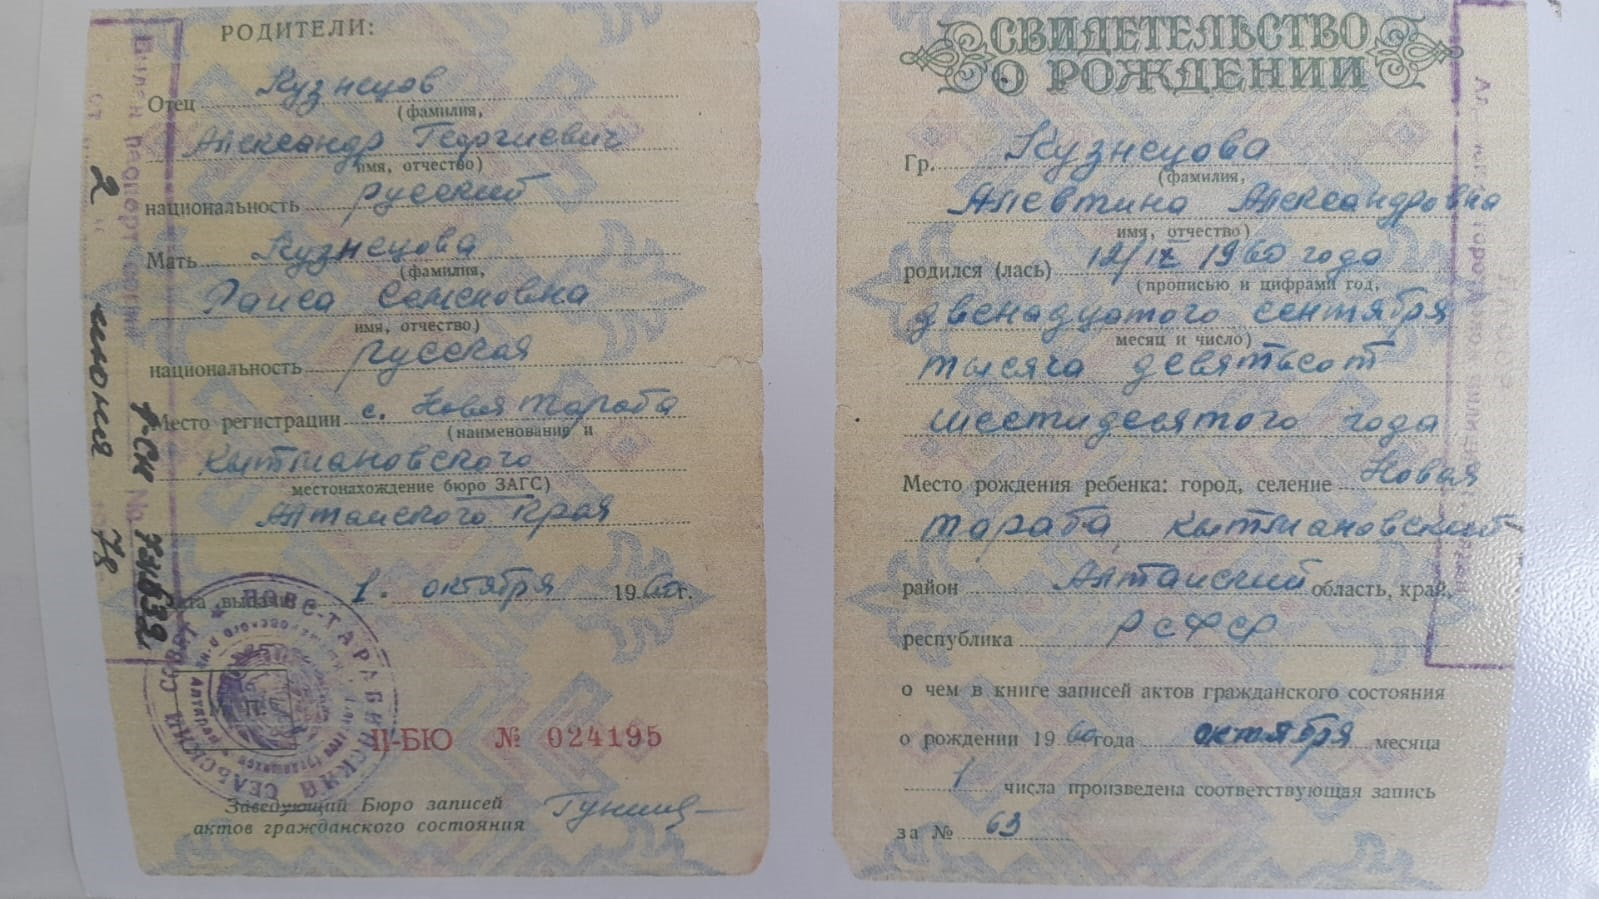 РОДИТЕЛИ:
Отец Кузнецов
(фамилия,
Александр Георгиевич
имя, отчество)
национальность русский
Мать Кузнецова
(фамилия,
Раиса Семеновна
имя, отчество)
национальность русская
Место регистрации с. Новая Тараба
(наименование и
Кытмановского
местонахождение бюро ЗАГС)
Алтайского края
Дата выдачи 1. октября 1960 г.
II-БЮ № 024195
Заведующий Бюро записей
актов гражданского состояния
НОВО-ТАРАБИНСКИЙ СЕЛЬСКИЙ СОВЕТ
Выдан паспорт
2 июня 78
№
СВИДЕТЕЛЬСТВО
О РОЖДЕНИИ
Гр. Кузнецова
(фамилия,
Алевтина Александровна
имя, отчество)
родился (лась) 12/IX 1960 года
(прописью и цифрами год,
двенадцатого сентября
месяц и число)
тысяча девятьсот
шестидесятого года
Место рождения ребенка: город, селение Новая
Тараба, Кытмановский
район Алтайский область, край,
республика РСФСР
о чем в книге записей актов гражданского состояния
о рождении 1960 года октября месяца
1 числа произведена соответствующая запись
за № 63